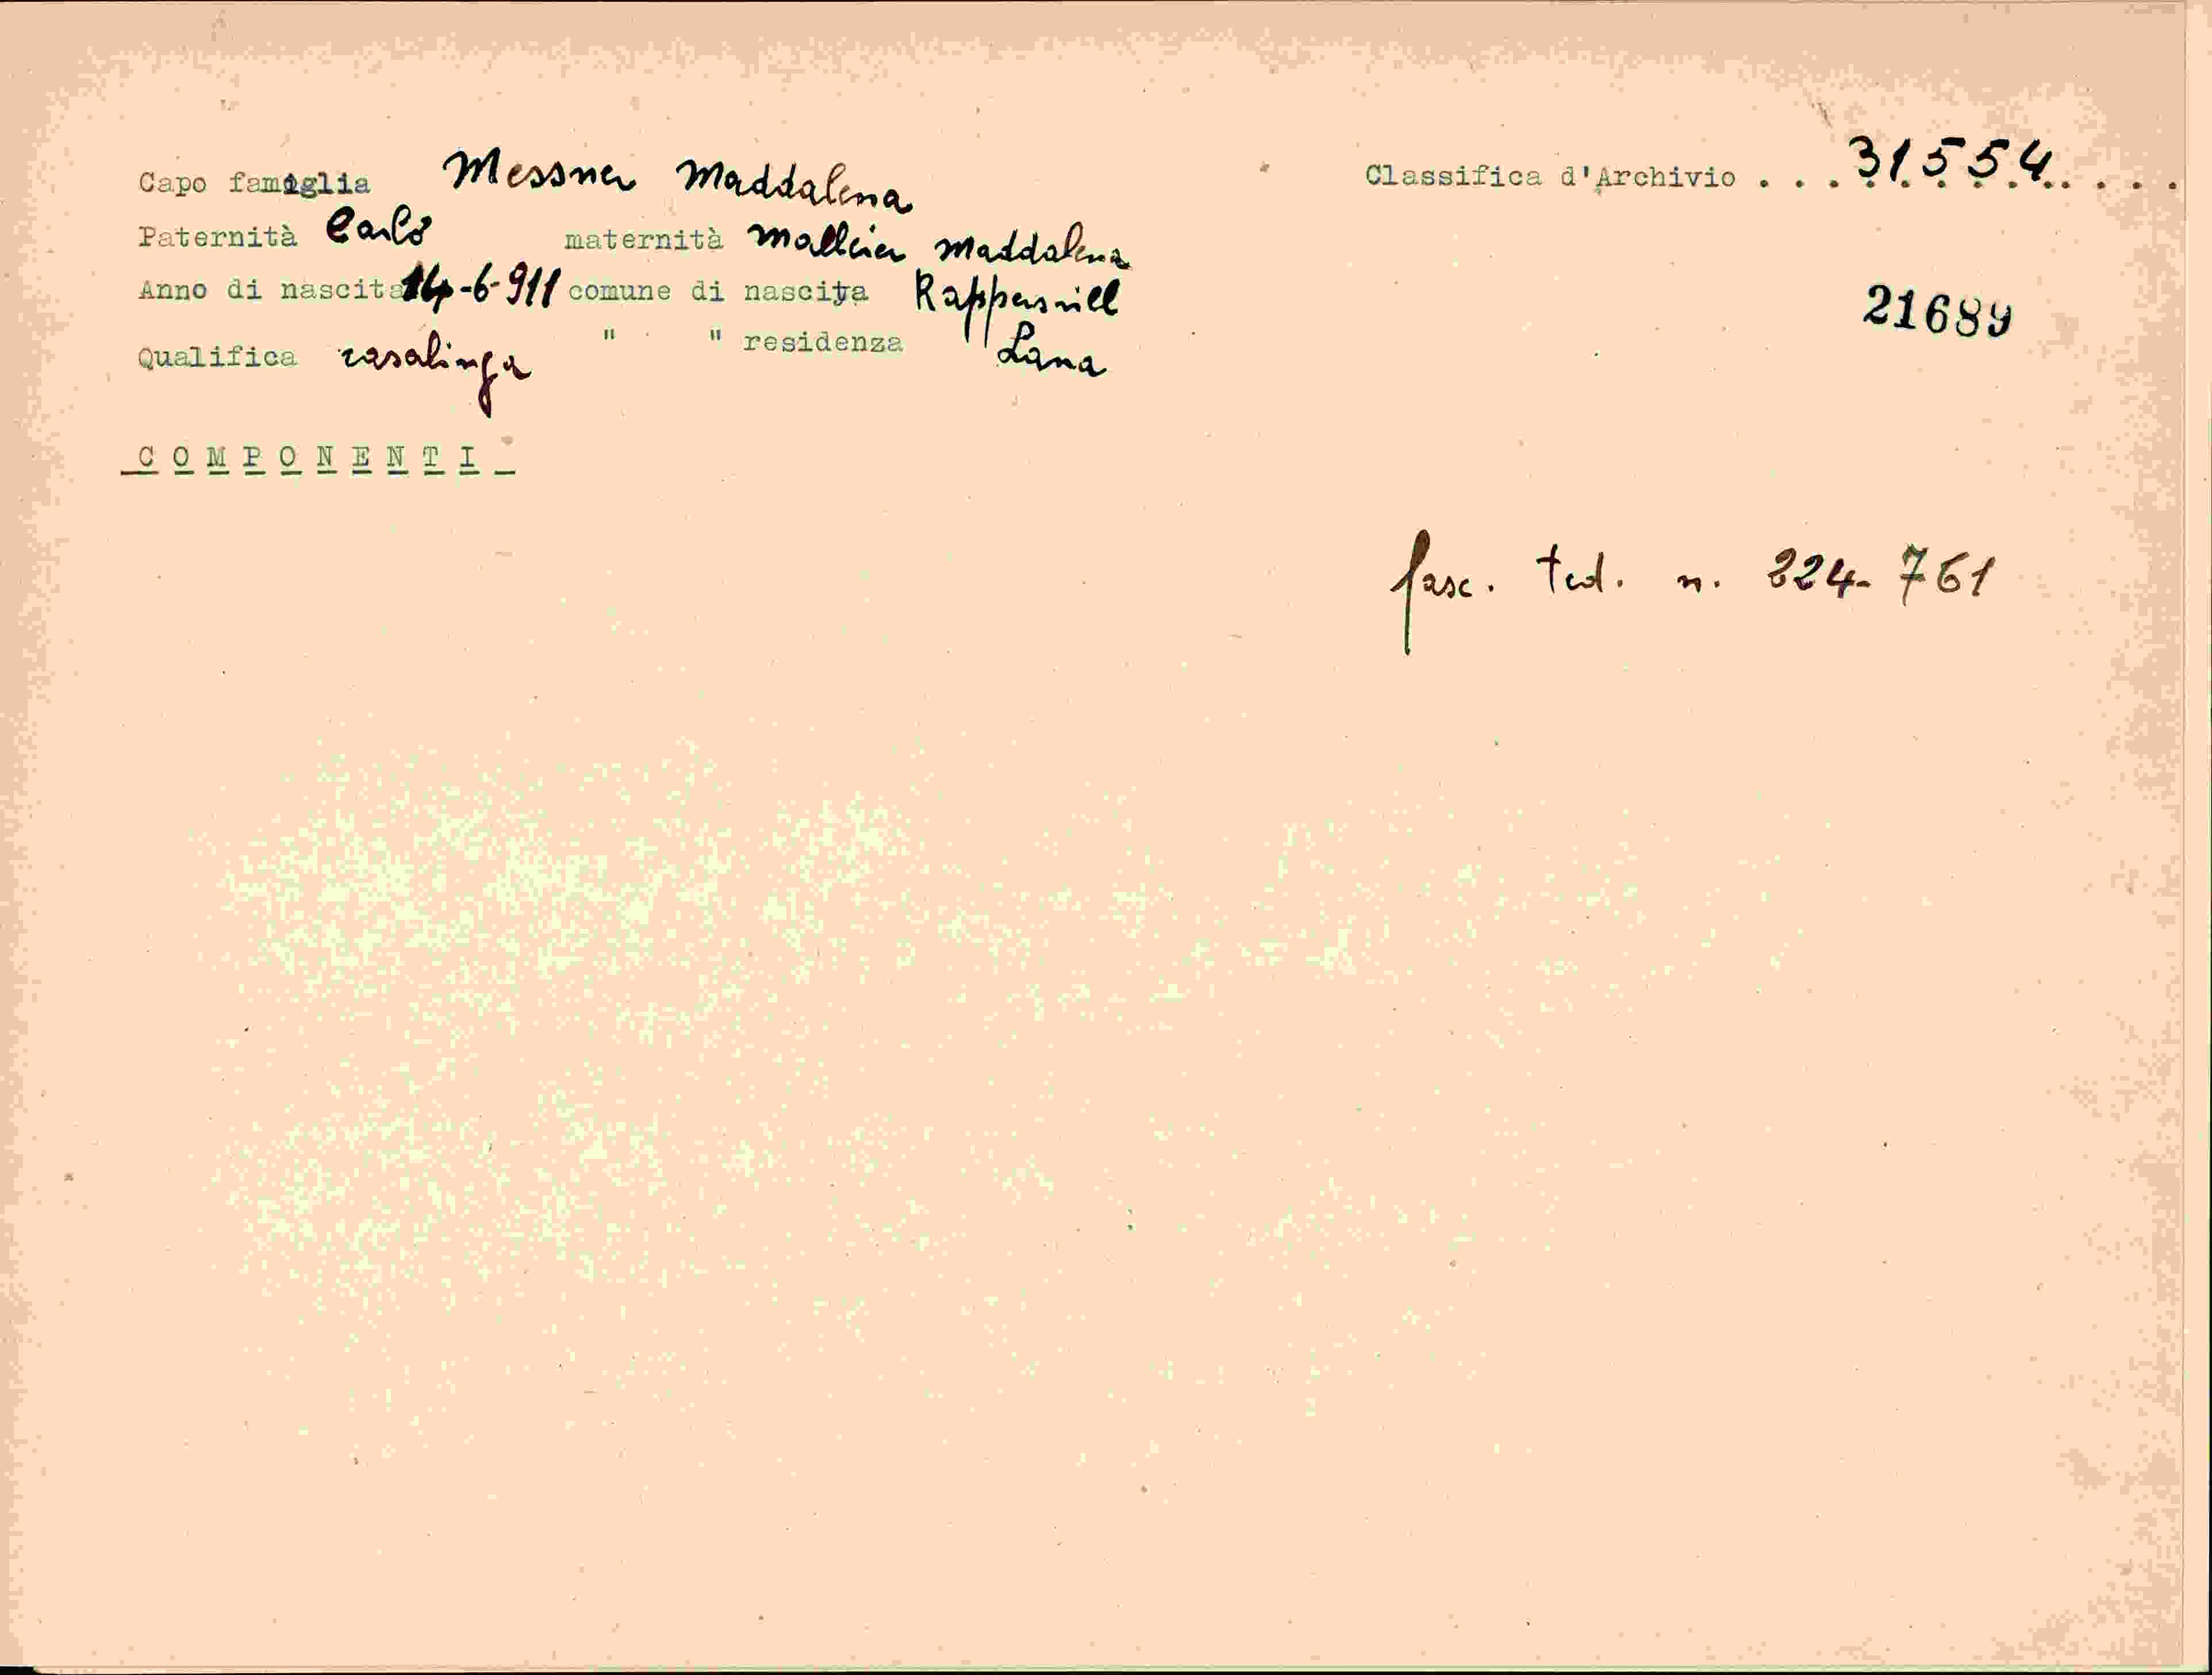 Capo famiglia Messner Maddalena
Classifica d'Archivio . . . 31554 . . . .
Paternità Carlo maternità Malleier Maddalena
Anno di nascita 14-6-911 comune di nascita Rapperswill
21689
Qualifica casalinga " " residenza Lana
C O M P O N E N T I
fasc. ted. n. 224-761